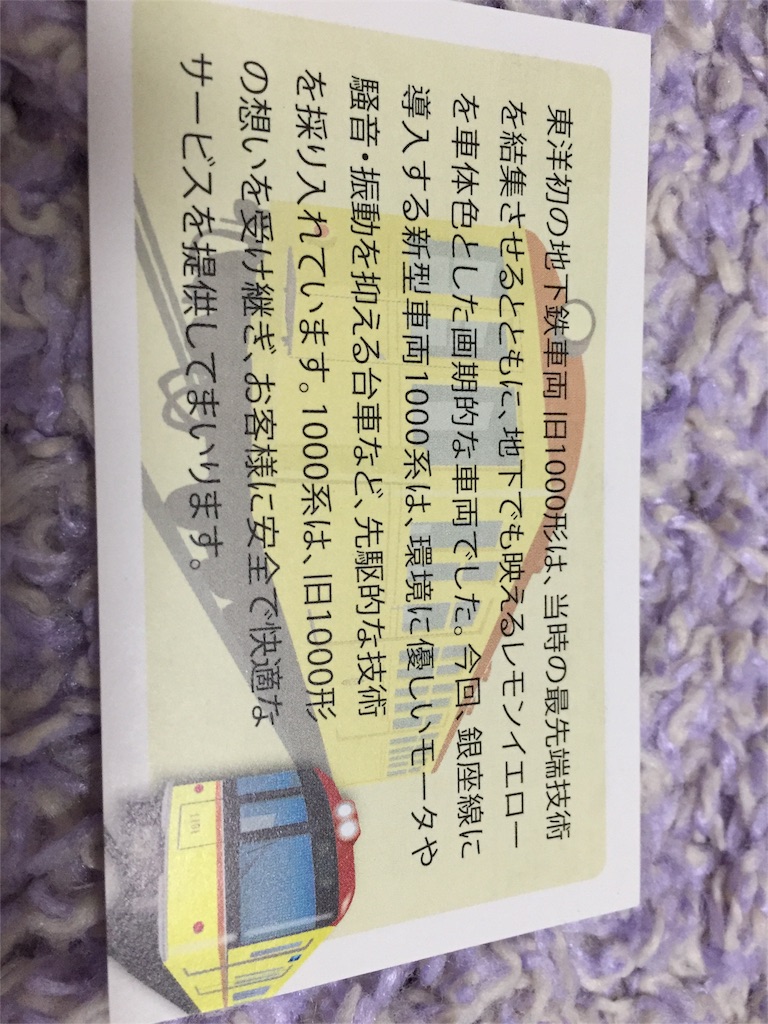 東洋初の地下鉄車両 旧1000形は、当時の最先端技術
を結集させるとともに、地下でも映えるレモンイエロー
を車体色とした画期的な車両でした。今回、銀座線に
導入する新型車両1000系は、環境に優しいモータや
騒音・振動を抑える台車など、先駆的な技術
を採り入れています。1000系は、旧1000形
の想いを受け継ぎ、お客様に安全で快適な
サービスを提供してまいります。